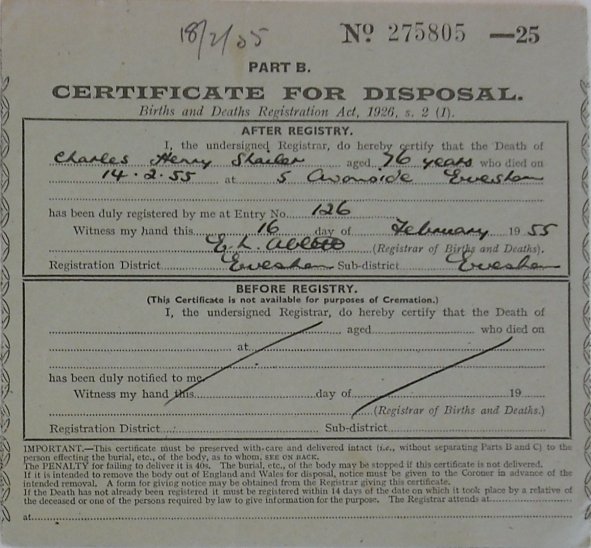 18/2/55
Nº 275805 —25
PART B.
CERTIFICATE FOR DISPOSAL.
Births and Deaths Registration Act, 1926, s. 2 (1).
AFTER REGISTRY.
I, the undersigned Registrar, do hereby certify that the Death of
Charles Henry Shailer aged 76 years who died on
14.2.55 at 5 Avonside Evesham
has been duly registered by me at Entry No. 126
Witness my hand this 16 day of February 19 55
E. L. (Registrar of Births and Deaths).
Registration District Evesham Sub-district Evesham
BEFORE REGISTRY.
(This Certificate is not available for purposes of Cremation.)
I, the undersigned Registrar, do hereby certify that the Death of
aged who died on
at
has been duly notified to me.
Witness my hand this day of 19
(Registrar of Births and Deaths.)
Registration District Sub-district
IMPORTANT.—This certificate must be preserved with care and delivered intact (i.e., without separating Parts B and C) to the
person effecting the burial, etc., of the body, as to whom, SEE ON BACK.
The PENALTY for failing to deliver it is 40s. The burial, etc., of the body may be stopped if this certificate is not delivered.
If it is intended to remove the body out of England and Wales for disposal, notice must be given to the Coroner in advance of the
intended removal. A form for giving notice may be obtained from the Registrar giving this certificate.
If the Death has not already been registered it must be registered within 14 days of the date on which it took place by a relative of
the deceased or one of the persons required by law to give information for the purpose. The Registrar attends at
at